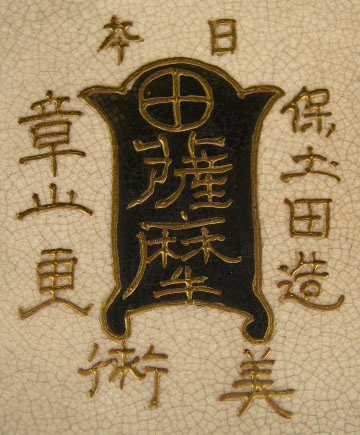 日本
薩摩
保土田造
章山更
美術